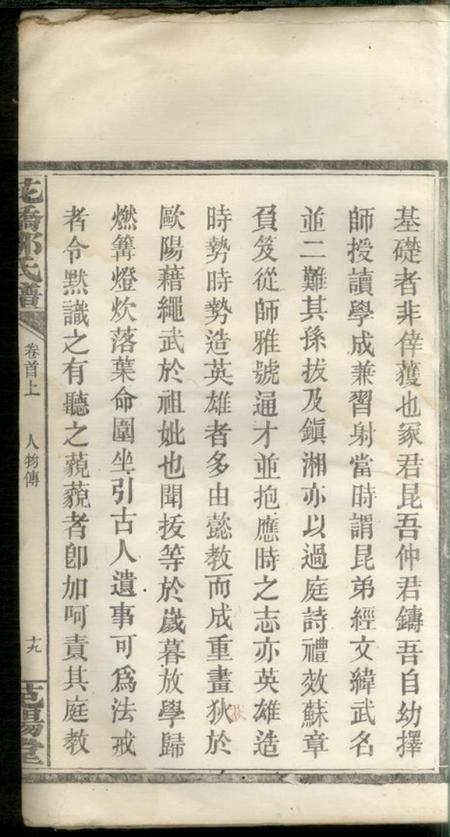 基礎者非倖獲也冢君昆吾仲君鑄吾自幼擇
師授讀學成兼習射當時謂昆弟經文緯武名
並二難其孫拔及鎮湘亦以過庭詩禮效蘇章
負笈從師雅號通才並抱應時之志亦英雄造
時勢時勢造英雄者多由懿教而成重畫狄於
歐陽藉繩武於祖妣也聞拔等於嵗暮放學歸
燃篝燈炊落葉命圍坐引古人遺事可為法戒
者令默識之有聽之藐藐者卽加呵責其庭教
氏譜
卷首上
人物傳
十九
堂